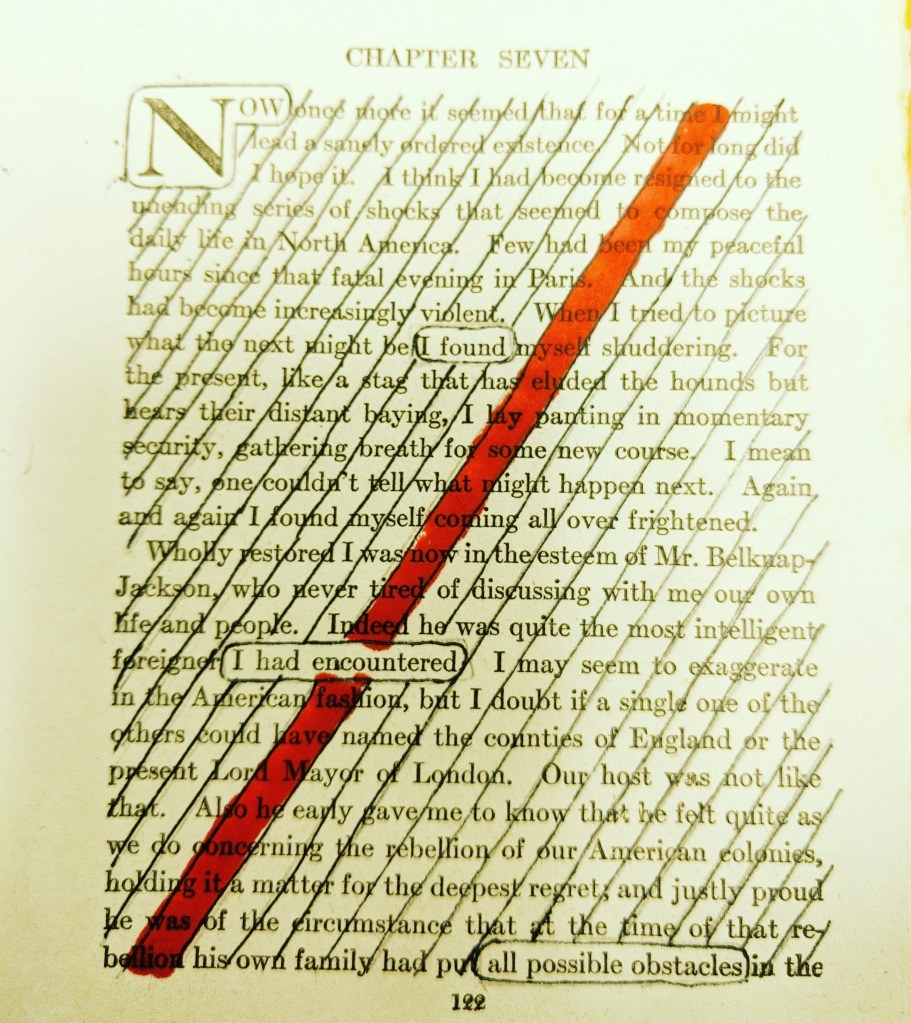 CHAPTER SEVEN
Now once more it seemed that for a time I might
lead a sanely ordered existence. Not for long did
I hope it. I think I had become resigned to the
unending series of shocks that seemed to compose the
daily life in North America. Few had been my peaceful
hours since that fatal evening in Paris. And the shocks
had become increasingly violent. When I tried to picture
what the next might be I found myself shuddering. For
the present, like a stag that has eluded the hounds but
hears their distant baying, I lay panting in momentary
security, gathering breath for some new course. I mean
to say, one couldn't tell what might happen next. Again
and again I found myself coming all over frightened.
Wholly restored I was now in the esteem of Mr. Belknap-
Jackson, who never tired of discussing with me our own
life and people. Indeed he was quite the most intelligent
foreigner I had encountered. I may seem to exaggerate
in the American fashion, but I doubt if a single one of the
others could have named the counties of England or the
present Lord Mayor of London. Our host was not like
that. Also he early gave me to know that he felt quite as
we do concerning the rebellion of our American colonies,
holding it a matter for the deepest regret; and justly proud
he was of the circumstance that at the time of that re-
bellion his own family had put all possible obstacles in the
122